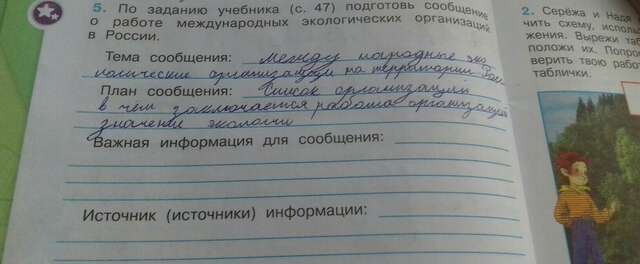 5. По заданию учебника (с. 47) подготовь сообщение
о работе международных экологических организаций
в России.
Тема сообщения: Между народные эко
логические организации на территории Рос
План сообщения: Список организаций
в чём заключается работа организаций
значение экологии
Важная информация для сообщения:
Источник (источники) информации:
2. Серёжа и Надя
чить схему, исполь
жения. Вырежи таб
положи их. Попро
верить твою рабо
таблички.